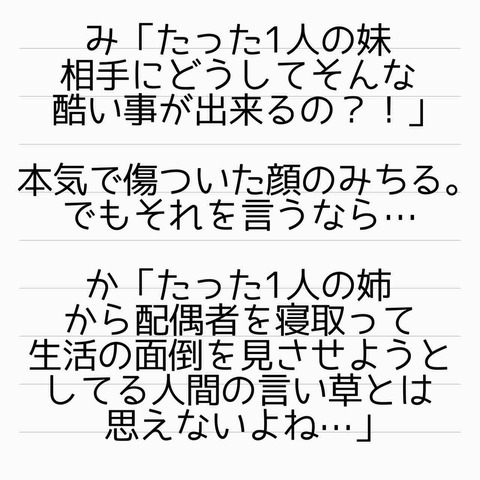 み「たった1人の妹
相手にどうしてそんな
酷い事が出来るの？！」
本気で傷ついた顔のみちる。
でもそれを言うなら…
か「たった1人の姉
から配偶者を寝取って
生活の面倒を見させようと
してる人間の言い草とは
思えないよね…」